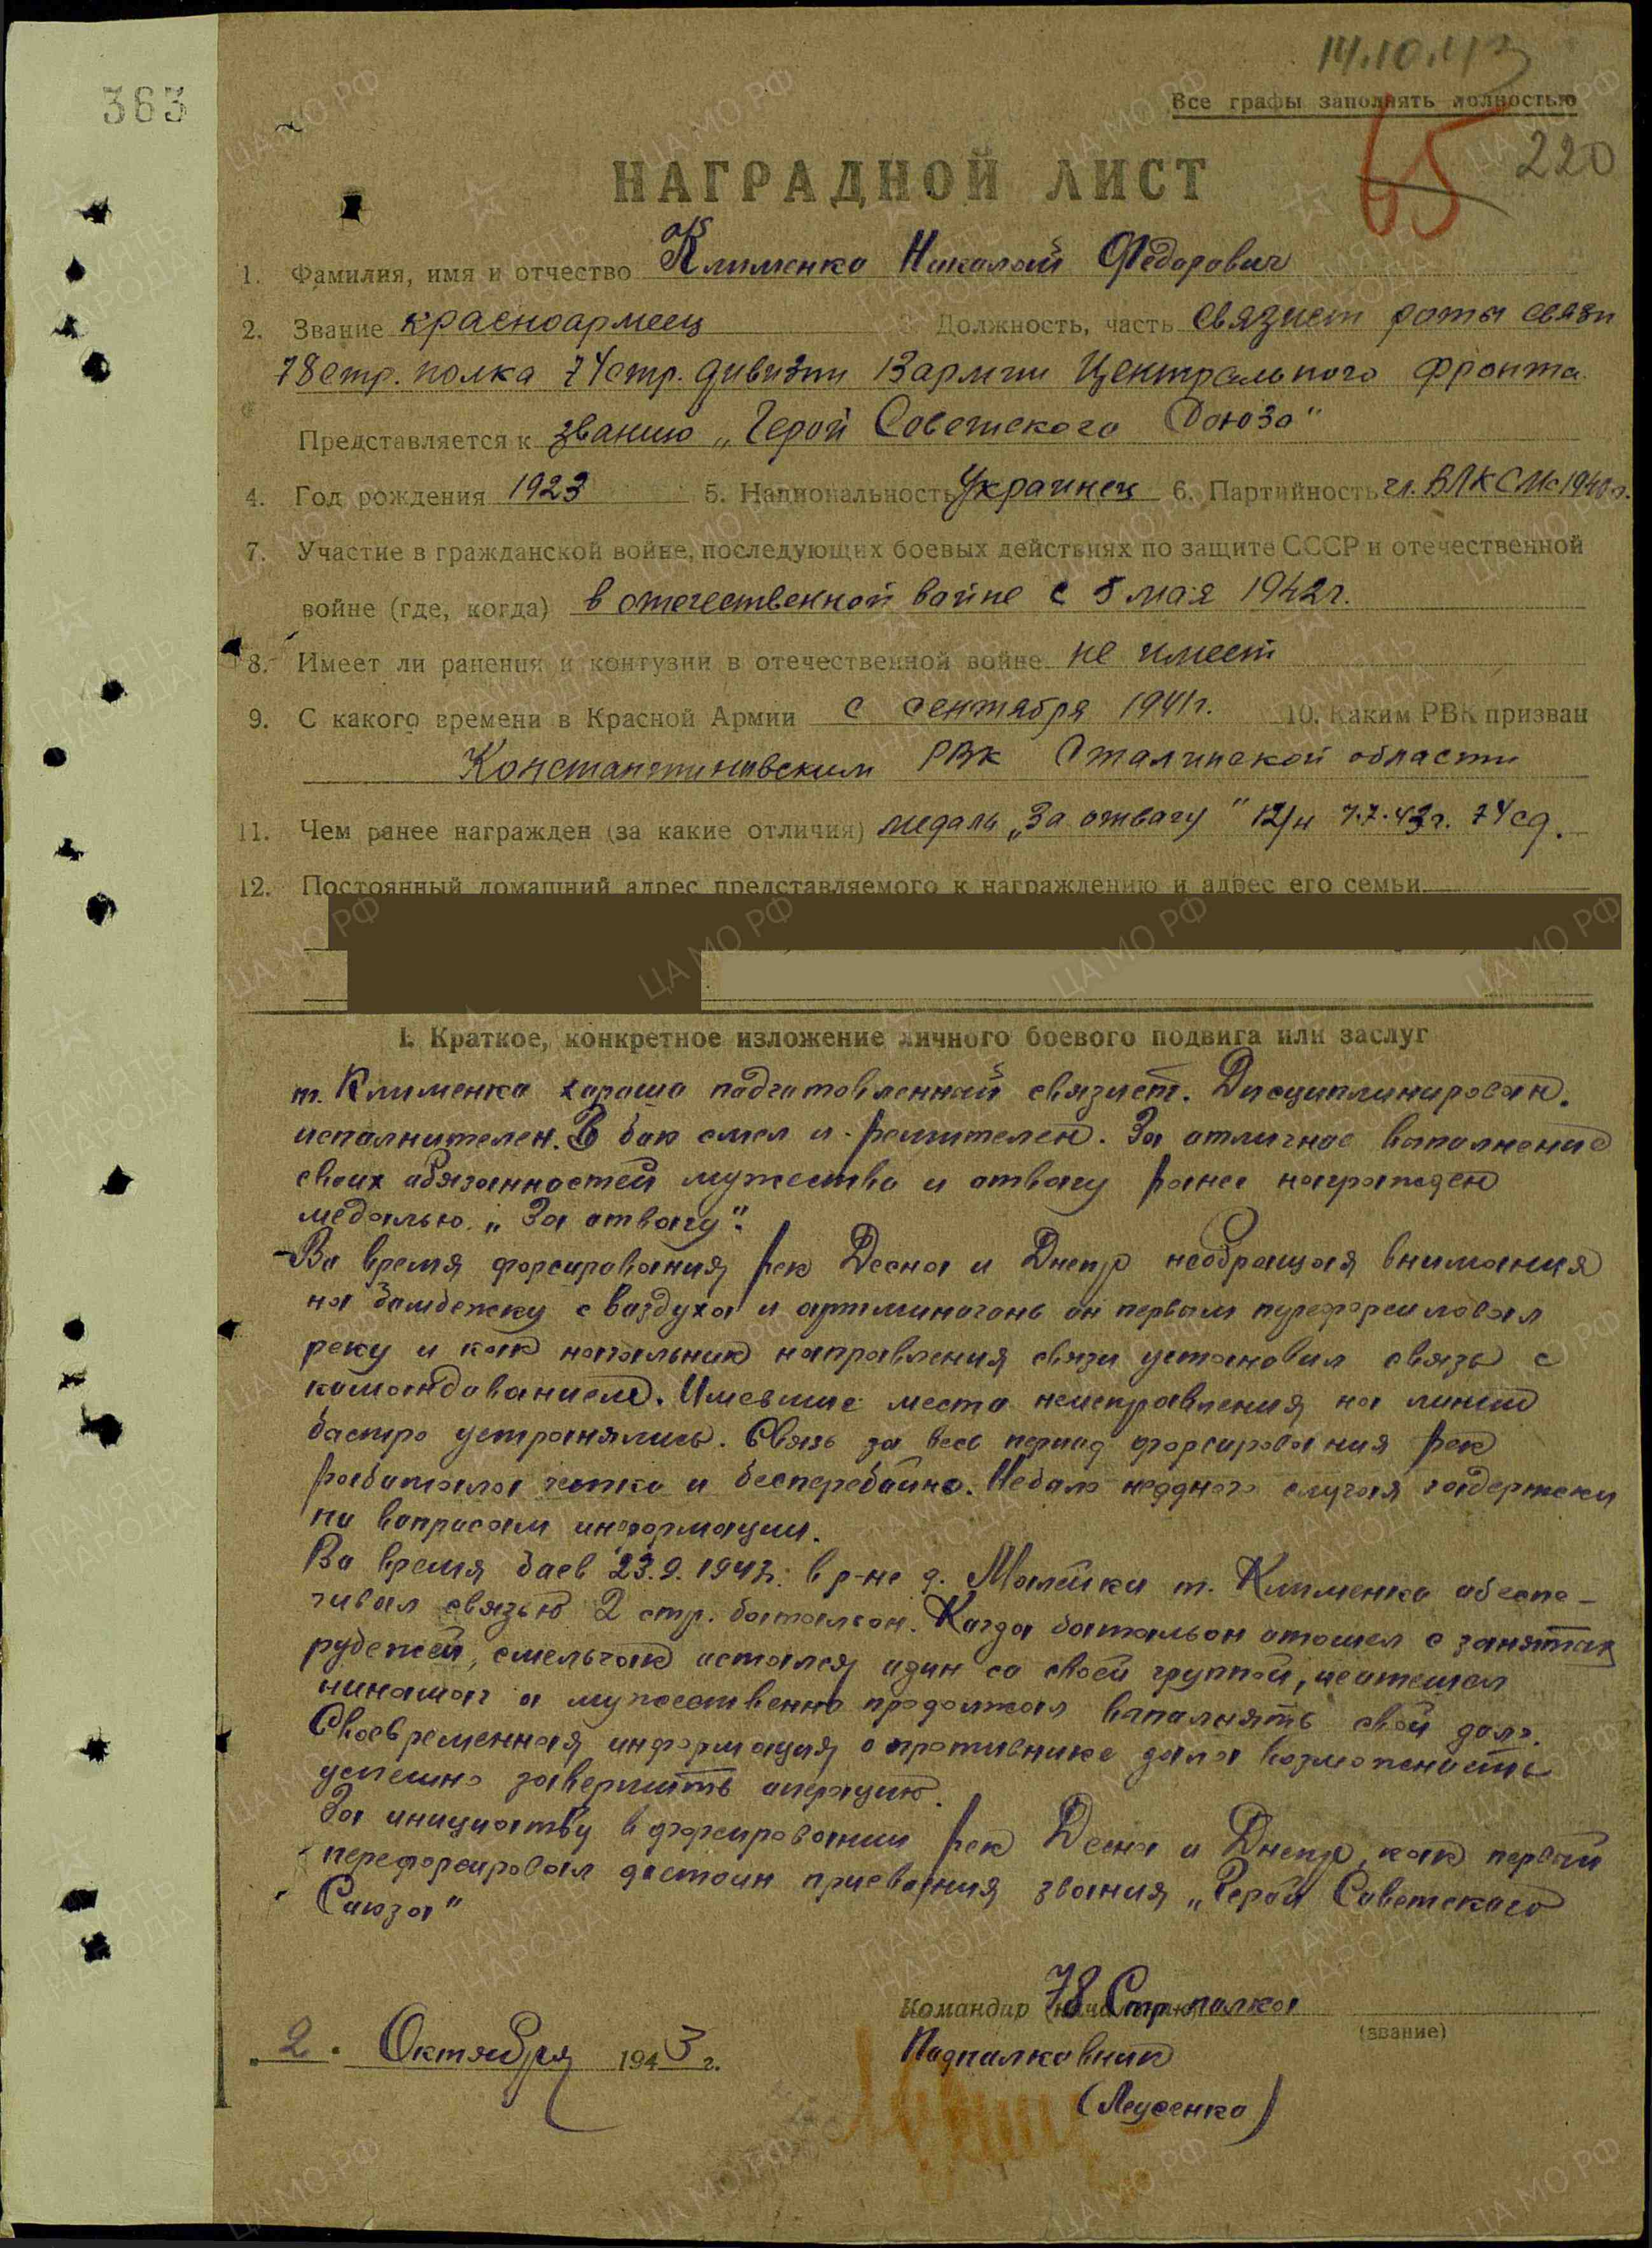 14.10.43
363
Все графы заполнять полностью
65
220
НАГРАДНОЙ ЛИСТ
1. Фамилия, имя и отчество Клименко Николай Федорович
2. Звание красноармеец 3. Должность, часть связист роты связи
78 стр. полка 74 стр. дивизии 13 армии Центрального фронта
Представляется к званию „Герой Советского Союза"
4. Год рождения 1923 5. Национальность Украинец 6. Партийность чл. ВЛКСМ с 1940 г.
7. Участие в гражданской войне, последующих боевых действиях по защите СССР и отечественной
войне (где, когда) в отечественной войне с 5 мая 1942 г.
8. Имеет ли ранения и контузии в отечественной войне не имеет
9. С какого времени в Красной Армии с сентября 1941 г. 10. Каким РВК призван
Константиновским РВК Сталинской области
11. Чем ранее награжден (за какие отличия) медаль „За отвагу" 12/н 7.7.43 г. 74 сд.
12. Постоянный домашний адрес представляемого к награждению и адрес его семьи
I. Краткое, конкретное изложение личного боевого подвига или заслуг
т. Клименко хорошо подготовленный связист. Дисциплинирован.
исполнителен. В бою смел и решителен. За отличное выполнение
своих обязанностей мужество и отвагу ранее награжден
медалью „За отвагу".
Во время форсирования рек Десна и Днепр необращая внимания
на бомбежку с воздуха и артминогонь он первым
реку и как начальник направления связи установил связь с
командованием. Имевшие места неисправления на линии
быстро устранялись. Связь за весь период форсирования рек
работала четко и бесперебойно. Небыло неодного случая задержки
по вопросам информации.
Во время боев 23.9.1943 г. в р-не д. Малейки т. Клименко обеспе-
чивал связью 2 стр. батальон. Когда батальон отошел с занятых
рубежей, смельчак остался один со своей группой, неотошел
а мужественно продолжал выполнять свой долг.
Своевременная информация о противнике дала возможность
успешно завершить операцию.
За в форсировании рек Десна и Днепр, как первый
перефорсировал достоин присвоения звания „Герой Советского
Союза"
Командир 78 Стр. полка
(звание)
Подполковник
„2" Октября 1943 г.